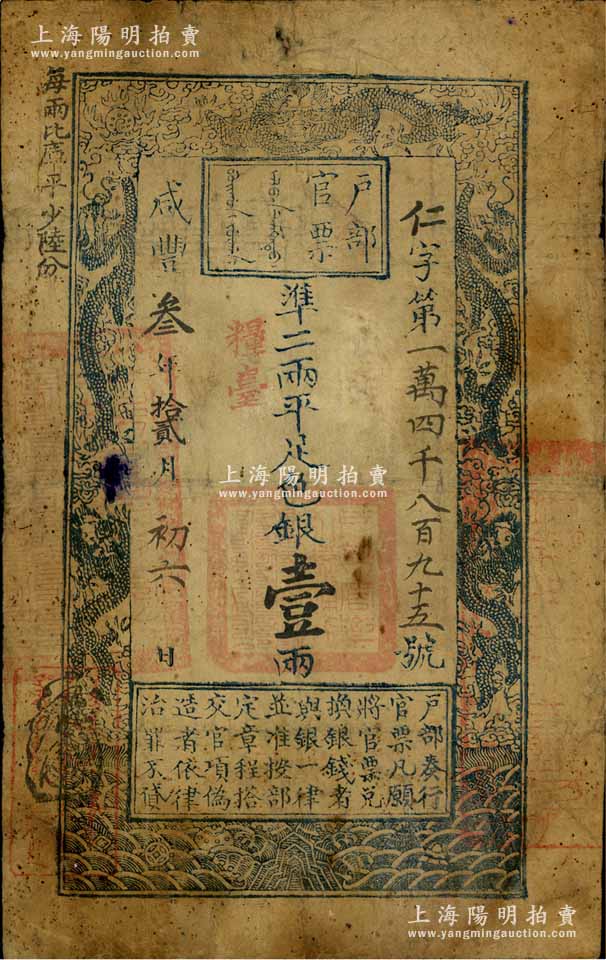 上海陽明拍賣
www.yangmingauction.com
每兩比庫平少陸分
戶部
官票
仁字第一萬四千八百九十五號
準二兩平足色銀壹兩
糧臺
咸豐叁年拾貳月初六日
上海陽明拍賣
www.yangmingauction.com
戶部奏行
官票凡願
將官票兌
換銀錢者
與銀一律
並准按部
定章程搭
交官項偽
造者依律
治罪不貸
上海陽明拍賣
www.yangmingauction.com